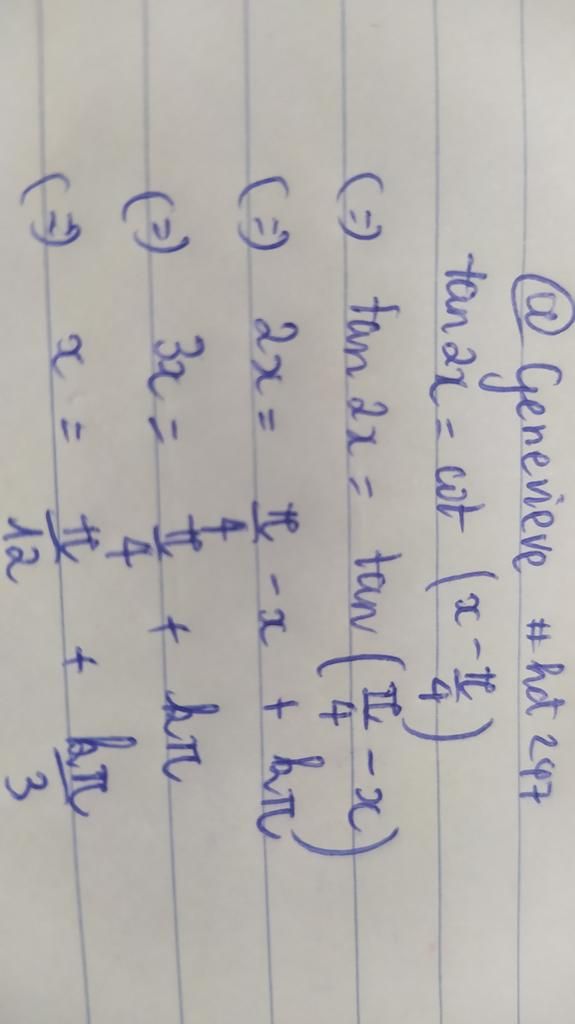 @ Genevieve # hd 247
tan 2x = cot (x - π/4)
(=) tan 2x = tan (π/4 - x)
(=) 2x = π/4 - x + kπ)
(=) 3x = π/4 + kπ
(=) x = π/12 + kπ/3